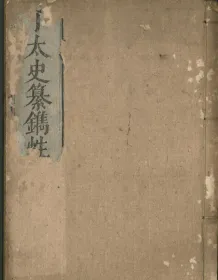 太史纂鐫